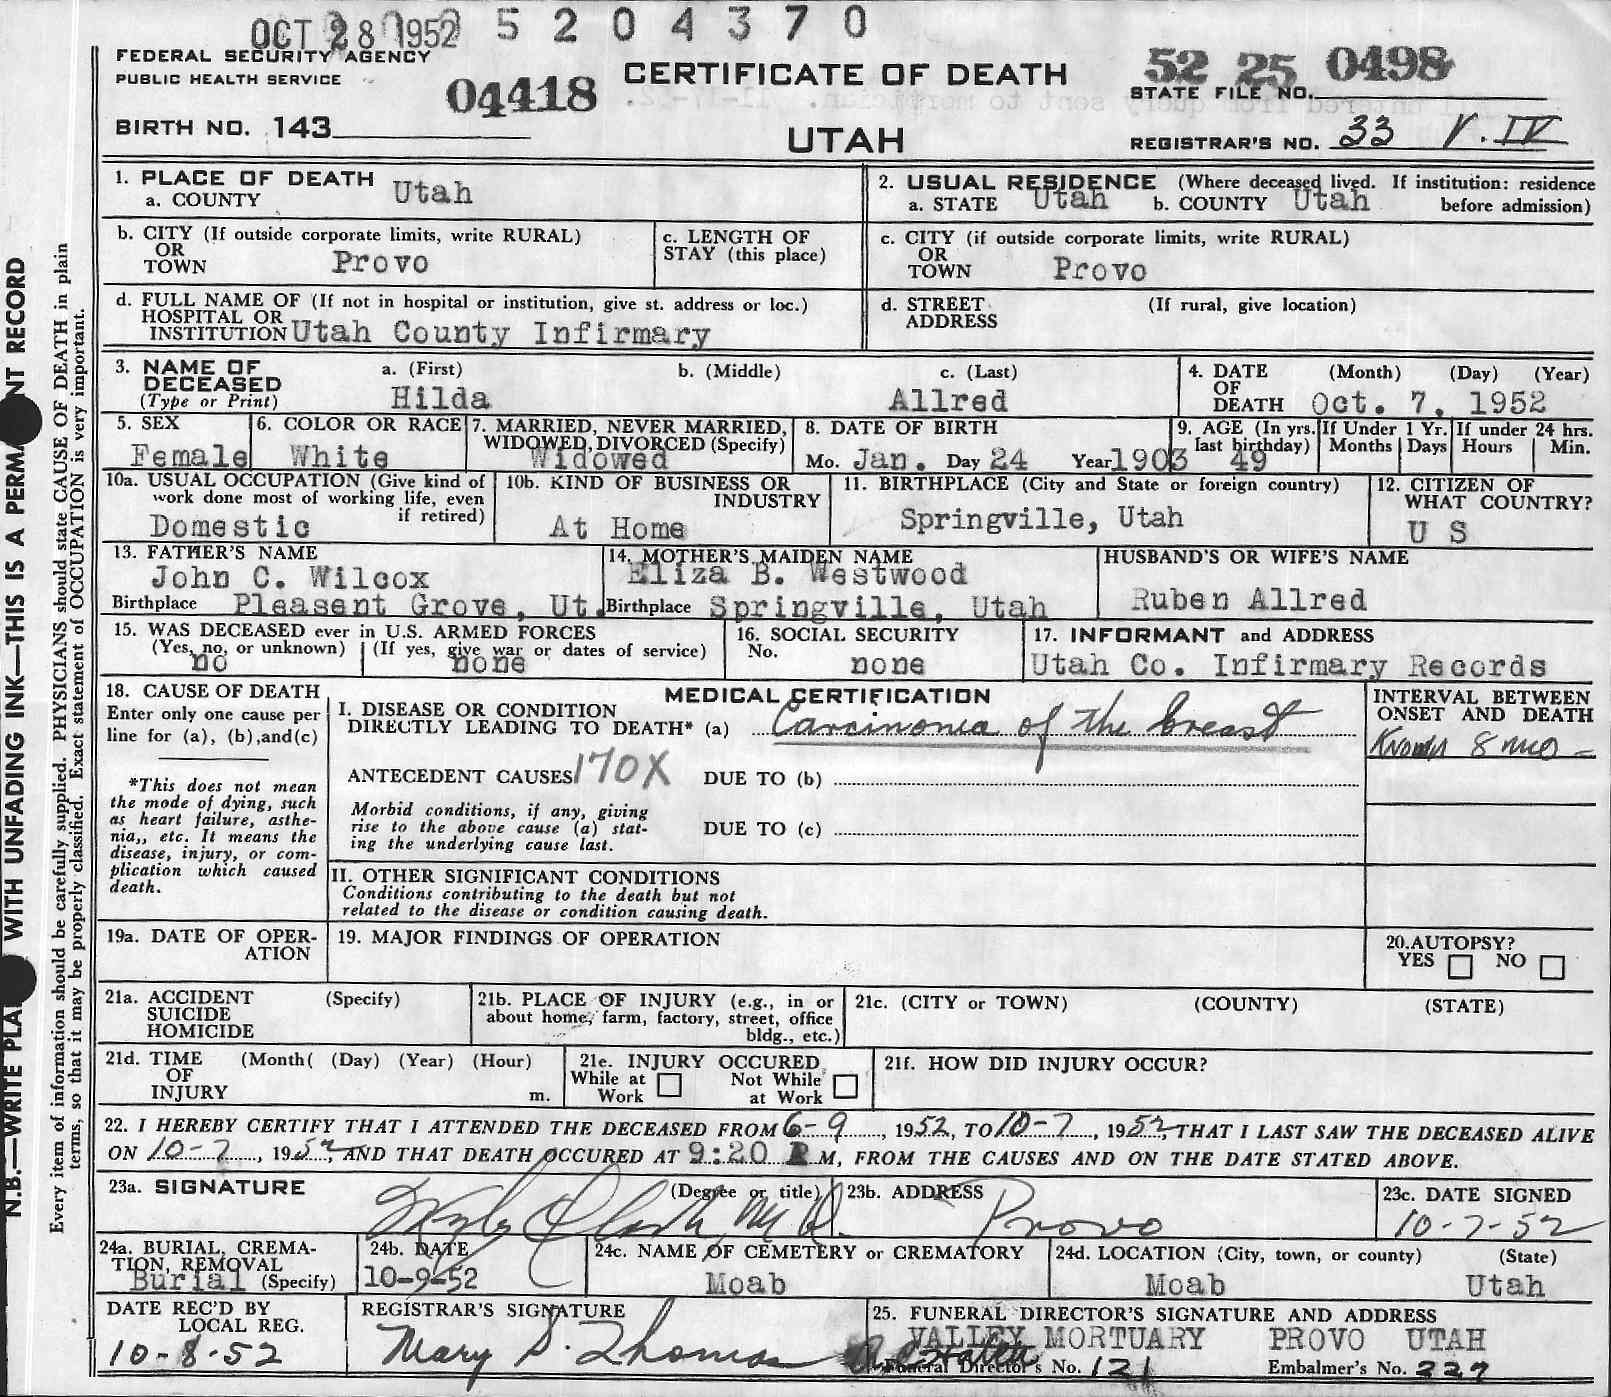 OCT 28 1952 5 2 0 4 3 7 0
FEDERAL SECURITY AGENCY
PUBLIC HEALTH SERVICE
04418
CERTIFICATE OF DEATH
52 25 0498
STATE FILE NO.
BIRTH NO. 143
UTAH
REGISTRAR'S NO. 33 V. IV
1. PLACE OF DEATH
a. COUNTY Utah
2. USUAL RESIDENCE (Where deceased lived. If institution: residence
a. STATE Utah b. COUNTY Utah before admission)
b. CITY (If outside corporate limits, write RURAL)
OR
TOWN Provo
c. LENGTH OF
STAY (this place)
c. CITY (if outside corporate limits, write RURAL)
OR
TOWN Provo
d. FULL NAME OF (If not in hospital or institution, give st. address or loc.)
HOSPITAL OR
INSTITUTION Utah County Infirmary
d. STREET (If rural, give location)
ADDRESS
3. NAME OF a. (First) b. (Middle) c. (Last)
DECEASED
(Type or Print) Hilda Allred
4. DATE (Month) (Day) (Year)
OF
DEATH Oct. 7, 1952
5. SEX
Female
6. COLOR OR RACE
White
7. MARRIED, NEVER MARRIED,
WIDOWED, DIVORCED (Specify)
Widowed
8. DATE OF BIRTH
Mo. Jan. Day 24 Year 1903
9. AGE (In yrs.
last birthday)
49
If Under 1 Yr.
Months Days
If under 24 hrs.
Hours Min.
10a. USUAL OCCUPATION (Give kind of
work done most of working life, even
if retired)
Domestic
10b. KIND OF BUSINESS OR
INDUSTRY
At Home
11. BIRTHPLACE (City and State or foreign country)
Springville, Utah
12. CITIZEN OF
WHAT COUNTRY?
U S
13. FATHER'S NAME
John C. Wilcox
Birthplace Pleasent Grove, Ut.
14. MOTHER'S MAIDEN NAME
Eliza B. Westwood
Birthplace Springville, Utah
HUSBAND'S OR WIFE'S NAME
Ruben Allred
15. WAS DECEASED ever in U.S. ARMED FORCES
(Yes, no, or unknown) (If yes, give war or dates of service)
no none
16. SOCIAL SECURITY
No.
none
17. INFORMANT and ADDRESS
Utah Co. Infirmary Records
18. CAUSE OF DEATH
Enter only one cause per
line for (a), (b), and (c)
*This does not mean
the mode of dying, such
as heart failure, asthe-
nia,, etc. It means the
disease, injury, or com-
plication which caused
death.
MEDICAL CERTIFICATION
I. DISEASE OR CONDITION
DIRECTLY LEADING TO DEATH* (a) Carcinonia of the breast
INTERVAL BETWEEN
ONSET AND DEATH
Known 8 mo -
ANTECEDENT CAUSES 170X DUE TO (b)
Morbid conditions, if any, giving
rise to the above cause (a) stat-
ing the underlying cause last.
DUE TO (c)
II. OTHER SIGNIFICANT CONDITIONS
Conditions contributing to the death but not
related to the disease or condition causing death.
19a. DATE OF OPER-
ATION
19. MAJOR FINDINGS OF OPERATION
20. AUTOPSY?
YES NO
21a. ACCIDENT (Specify)
SUICIDE
HOMICIDE
21b. PLACE OF INJURY (e.g., in or
about home, farm, factory, street, office
bldg., etc.)
21c. (CITY or TOWN) (COUNTY) (STATE)
21d. TIME (Month( (Day) (Year) (Hour)
OF
INJURY m.
21e. INJURY OCCURED
While at Not While
Work at Work
21f. HOW DID INJURY OCCUR?
22. I HEREBY CERTIFY THAT I ATTENDED THE DECEASED FROM 6-9, 1952, TO 10-7, 1952, THAT I LAST SAW THE DECEASED ALIVE
ON 10-7, 1952, AND THAT DEATH OCCURED AT 9:20 P M, FROM THE CAUSES AND ON THE DATE STATED ABOVE.
23a. SIGNATURE (Degree or title)
Clark M.D.
23b. ADDRESS
Provo
23c. DATE SIGNED
10-7-52
24a. BURIAL, CREMA-
TION, REMOVAL
Burial (Specify)
24b. DATE
10-9-52
24c. NAME OF CEMETERY or CREMATORY
Moab
24d. LOCATION (City, town, or county) (State)
Moab Utah
DATE REC'D BY
LOCAL REG.
10-8-52
REGISTRAR'S SIGNATURE
Mary S. Thomas
25. FUNERAL DIRECTOR'S SIGNATURE AND ADDRESS
VALLEY MORTUARY PROVO UTAH
Funeral Director's No. 121 Embalmer's No. 227
Every item of information should be carefully supplied. PHYSICIANS should state CAUSE OF DEATH in plain
terms, so that it may be properly classified. Exact statement of OCCUPATION is very important.
N.B.—WRITE PLA WITH UNFADING INK—THIS IS A PERMA NT RECORD